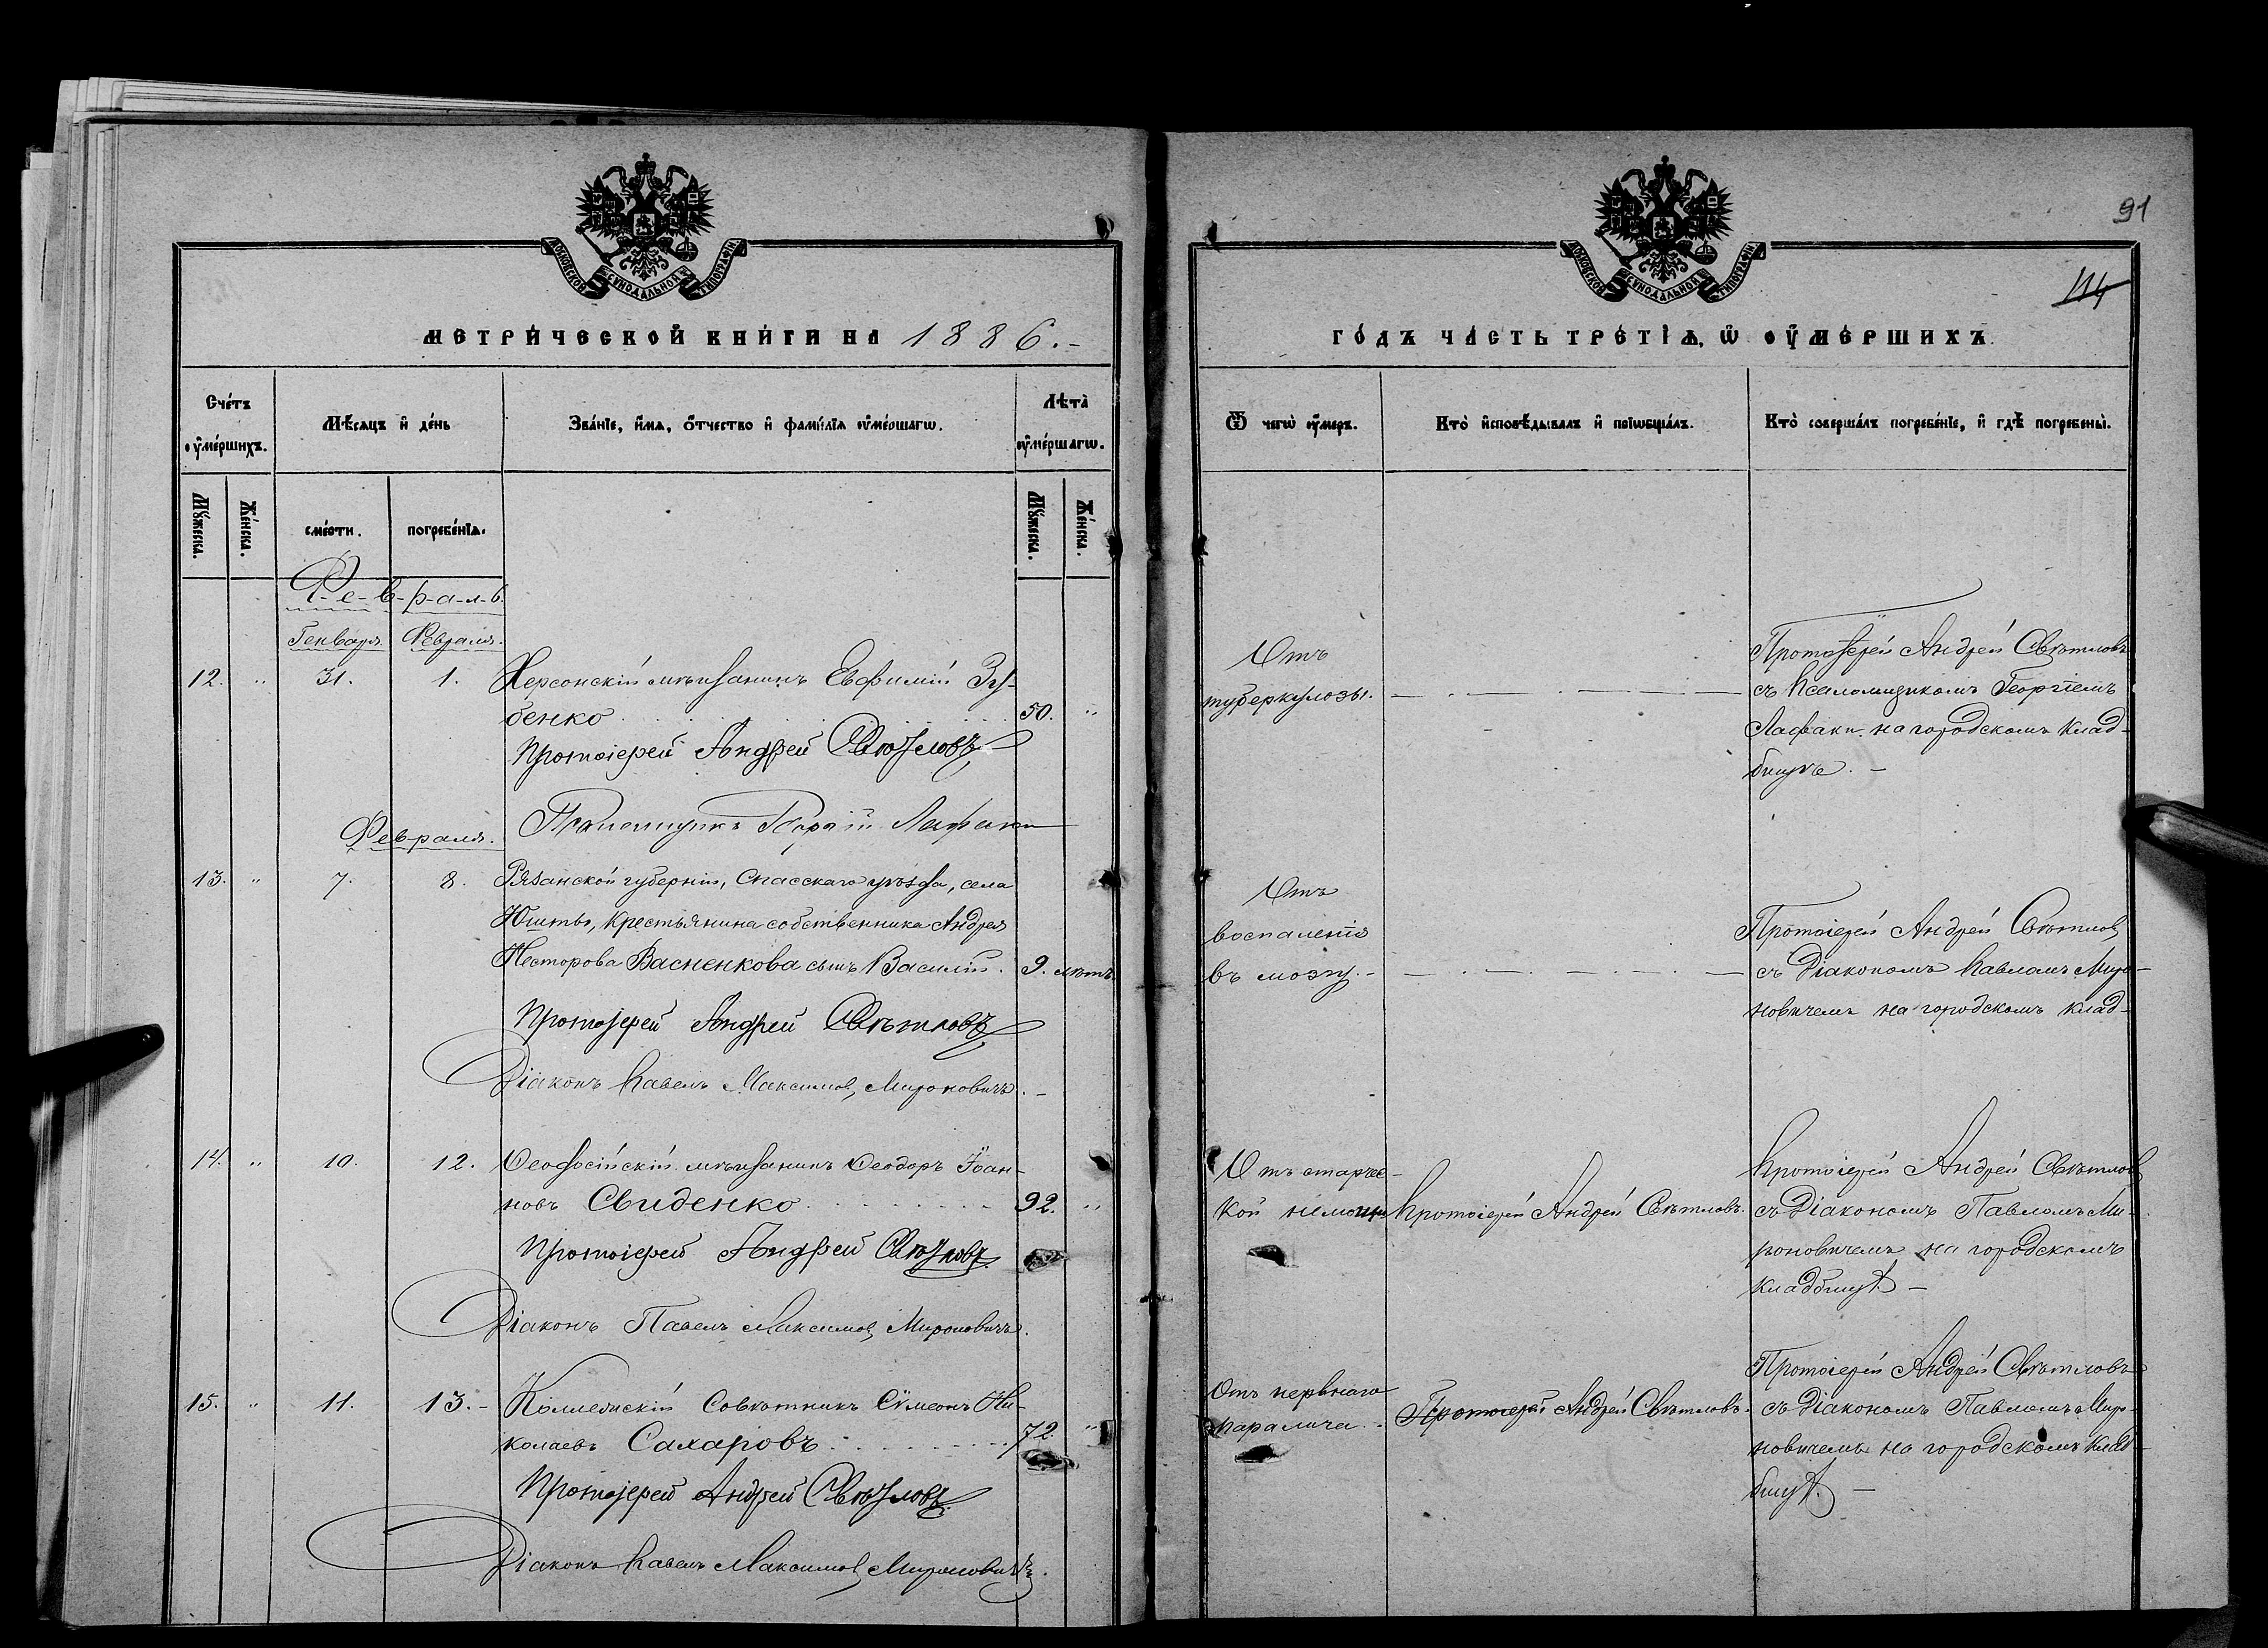 91
114
МОСКОВСКОЙ СѴНОДАЛЬНОЙ ТИПОГРАФІИ
МОСКОВСКОЙ СѴНОДАЛЬНОЙ ТИПОГРАФІИ
МЕТРИ́ЧЕСКОЙ КНИ́ГИ НА 1886.-
ГО́ДЪ ЧА́СТЬ ТРЕ́ТІѦ, Ѡ҆ ОУ҆МЕ́РШИХЪ.
Сче́тъ оу҆ме́ршихъ.
Мѣ́сяцъ и҆ де́нь
Зва́нїе, и҆́мѧ, ѻ҆́тчество и҆ фамі́лїѧ оу҆ме́ршагѡ.
Лѣта̀ оу҆ме́ршагѡ.
Ѿ чегѡ̀ оу҆́меръ.
Кто̀ и҆сповѣ́дывалъ и҆ прїѡбща́лъ.
Кто̀ соверша́лъ погребе́нїе, и҆ гдѣ̀ погребены̀.
Мꙋ́жеска.
Же́нска.
сме́рти.
погребе́нїѧ.
Мꙋ́жеска.
Же́нска.
Ф-е-в-р-а-л-ь
Генваря. Февраля.
12. " 31. 1. Херсонскій мѣщанинъ Евфимій Зу-
бенко 50. "
Протоіерей Андрей Свѣтловъ
Псаломщикъ Георгій Лафаки
Отъ
туберкулозы.
Протоіерей Андрей Свѣтловъ
съ Псаломщикомъ Георгіемъ
Лафаки на городскомъ клад-
бищѣ. -
Февраля.
13. " 7. 8. Рязанской губерніи, Спасскаго уѣзда, села
Юшты, крестьянина собственника Андрея
Несторова Васненкова сынъ Василій. 9. лѣтъ
Протоіерей Андрей Свѣтловъ
Діаконъ Павелъ Максимов Мироновичъ. -
Отъ
воспаленія
въ мозгу. -
Протоіерей Андрей Свѣтлов
съ Діакономъ Павломъ Миро-
новичемъ на городскомъ клад-
14. " 10. 12. Ѳеодосійскій мѣщанинъ Ѳеодоръ Іоан-
новъ Свиденко 92. "
Протоіерей Андрей Свѣтловъ.
Діаконъ Павелъ Максимов Мироновичъ.
Отъ старчес-
кой немощи
Протоіерей Андрей Свѣтловъ.
Протоіерей Андрей Свѣтлов
съ Діакономъ Павломъ Ми-
роновичемъ на городскомъ
кладбищѣ. -
15. " 11. 13. - Коллежскій Совѣтникъ Сѵмеонъ Ни-
колаевъ Сахаровъ 72. "
Протоіерей Андрей Свѣтловъ.
Діаконъ Павелъ Максимов Мироновичъ.
Отъ нервнаго
паралича.
Протоіерей Андрей Свѣтловъ.
Протоіерей Андрей Свѣтловъ
съ Діакономъ Павломъ Миро-
новичемъ на городскомъ клад-
бищѣ. -